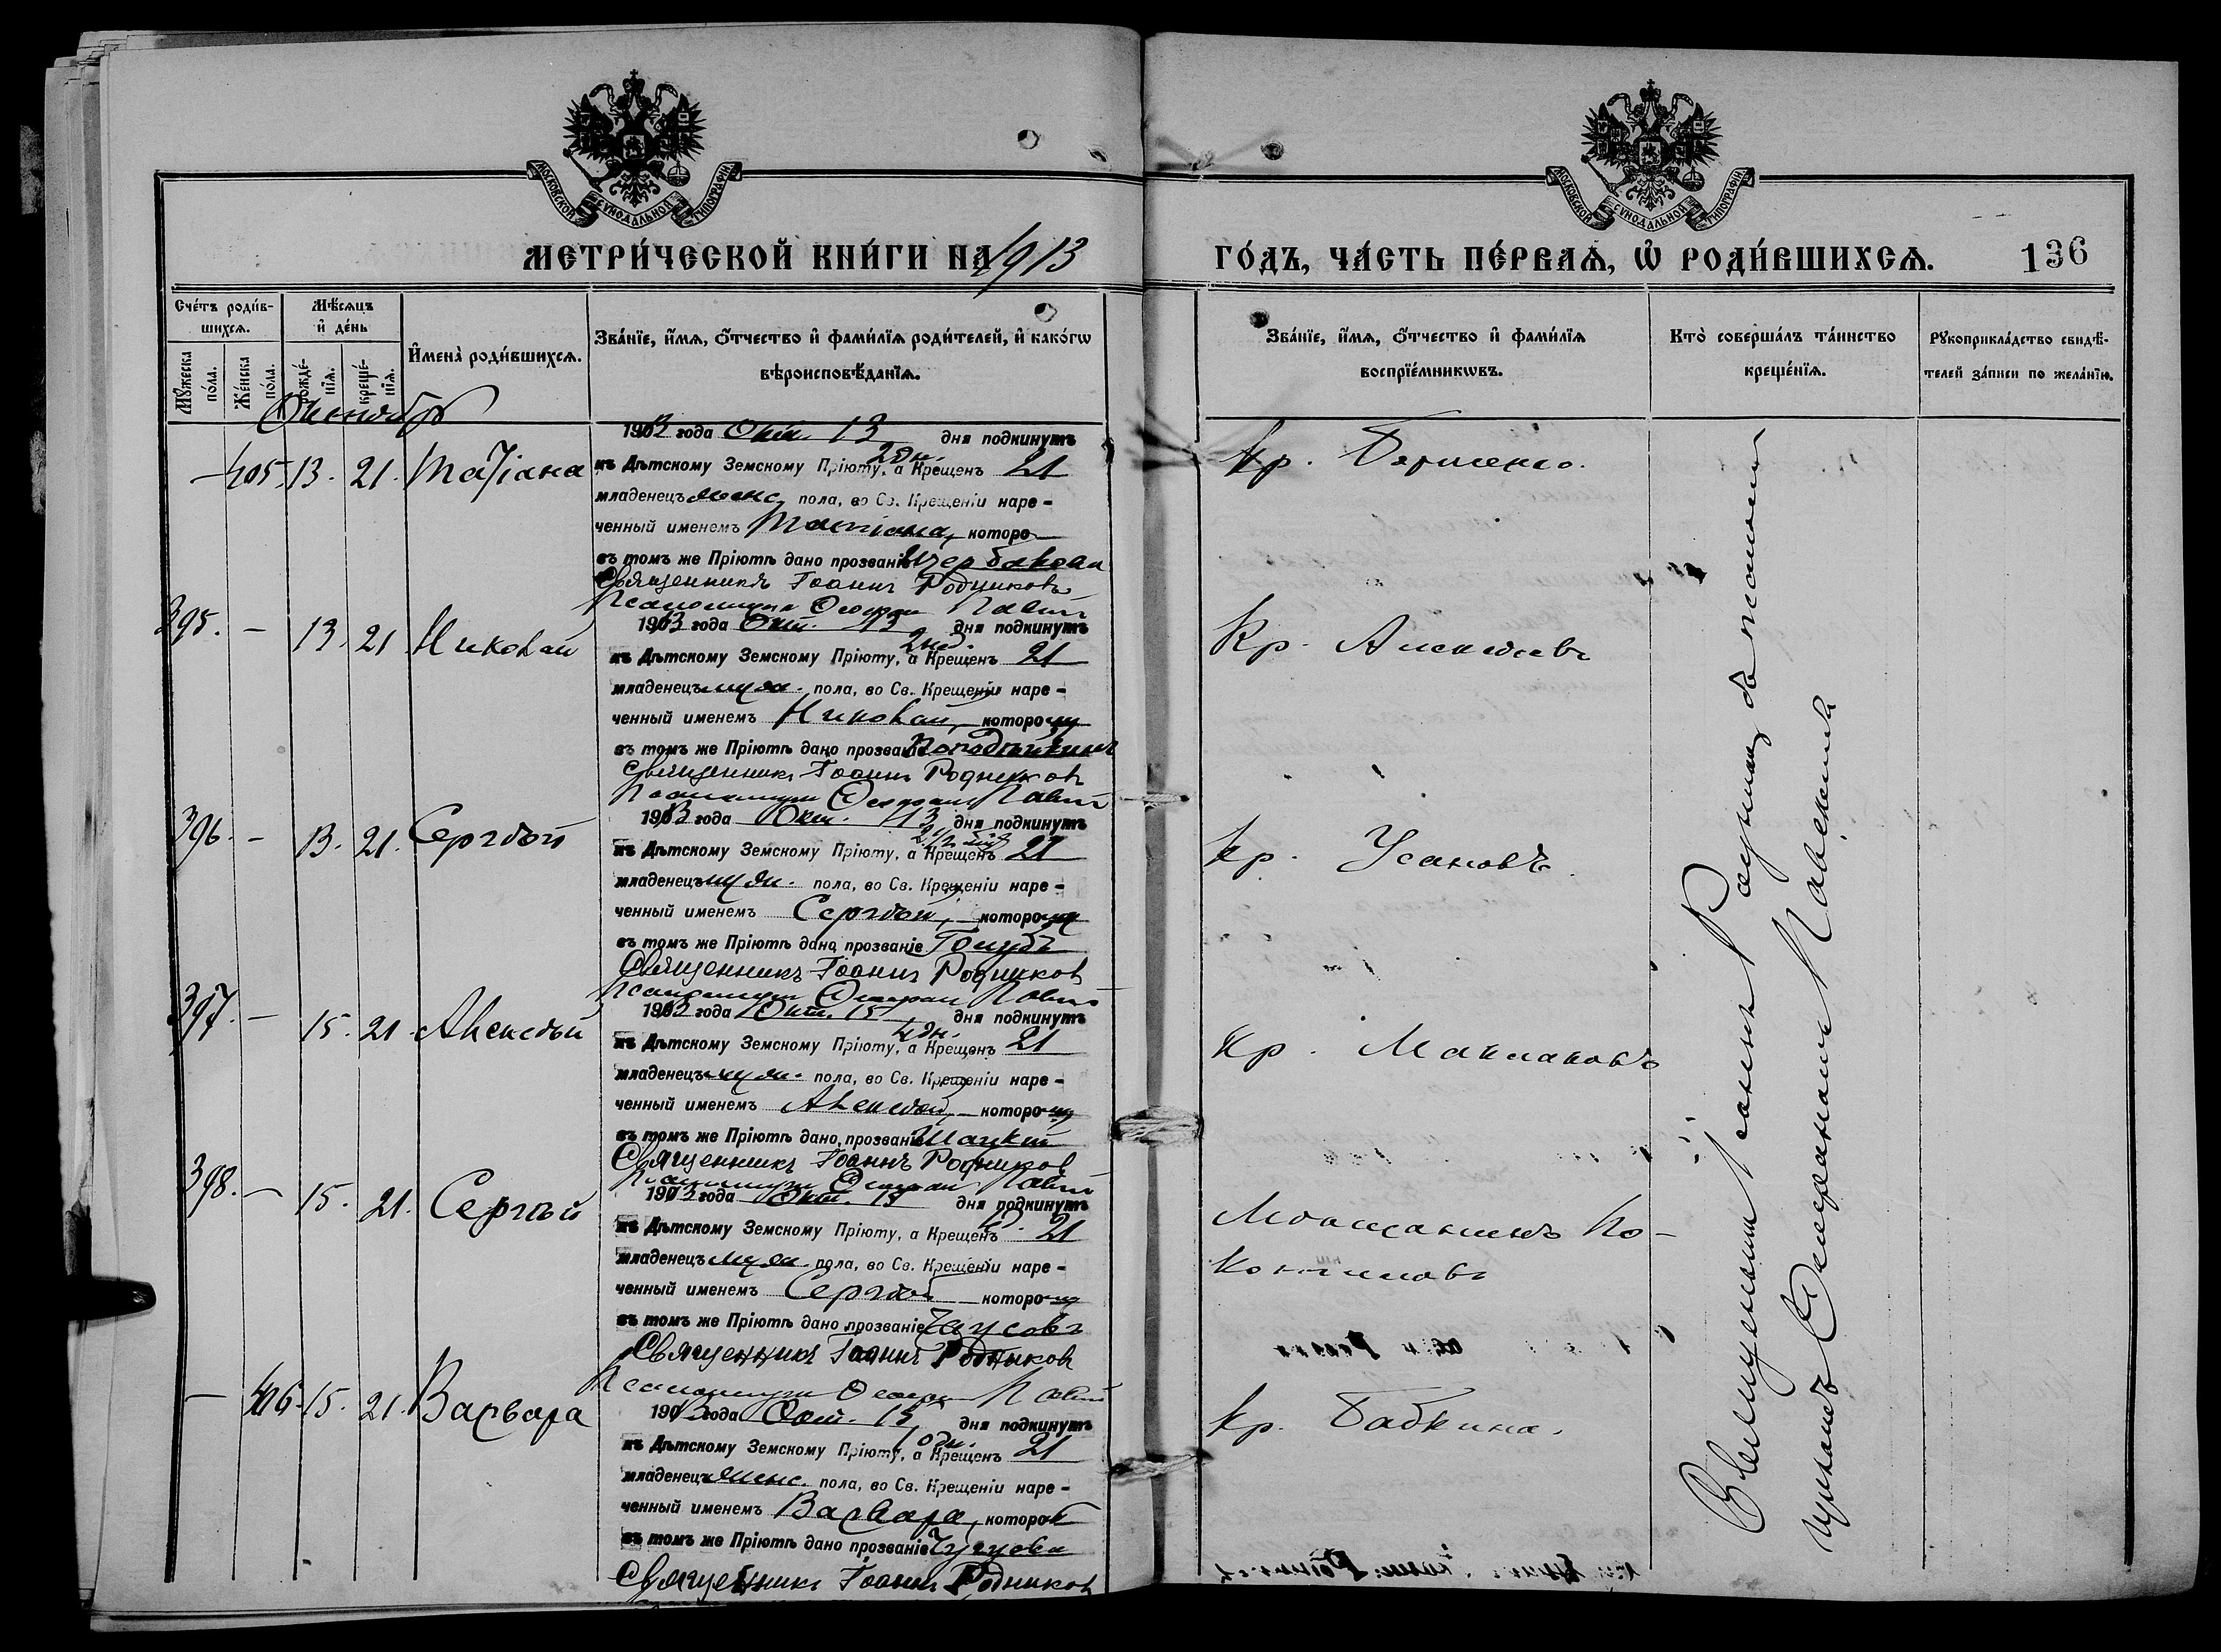 МОСКОВСКОЙ СѴНОДАЛЬНОЙ ТИПОГРАФІИ
МОСКОВСКОЙ СѴНОДАЛЬНОЙ ТИПОГРАФІИ
МЕТРИ́ЧЕСКОЙ КНИ́ГИ НА 1913
ГО́ДЪ, ЧА́СТЬ ПЕ́РВАѦ, Ѡ҆ РОДИ́ВШИХСѦ.
136
Сче́тъ роди́в-
шихсѧ.
Мꙋ́жеска по́ла.
Же́нска по́ла.
Мѣ́сѧцъ
и҆ де́нь
рожде́-нїѧ.
креще́-нїѧ.
И҆мена̀ роди́вшихсѧ.
Зва́нїе, и҆́мѧ, ѻ҆́тчество и҆ фами́лїѧ роди́телей, и҆ како́гѡ
вѣроисповѣ́данїѧ.
Зва́нїе, и҆́мѧ, ѻ҆́тчество и҆ фами́лїѧ
воспрїе́мникѡвъ.
Кто̀ соверша́лъ та́инство
креще́нїѧ.
Рꙋкоприкла́дство свидѣ́-
телей за́писи по жела́нїю.
Октябрь
— 405. 13. 21. Татіана
1913 года Окт. 13 дня подкинутъ
2 дн.
къ Дѣтскому Земскому Пріюту, а Крещенъ 21
младенецъ женс. пола, во Св. Крещеніи наре-
ченный именемъ Татіана, которо
въ томъ же Пріютѣ дано прозваніе Щербакова
Священникъ Іоаннъ Родниковъ
Псаломщикъ
Кр.
395. — 13. 21 Николай
1913 года Окт. 13 дня подкинутъ
2 нед.
къ Дѣтскому Земскому Пріюту, а Крещенъ 21
младенецъ муж. пола, во Св. Крещеніи наре-
ченный именемъ Николай, которому
въ томъ же Пріютѣ дано прозваніе
Священникъ Іоаннъ Родниковъ
Псаломщикъ
Кр. Алексѣевъ
396. — 13. 21. Сергѣй
1913 года Окт. 13 дня подкинутъ
къ Дѣтскому Земскому Пріюту, а Крещенъ 21
младенецъ муж. пола, во Св. Крещеніи наре-
ченный именемъ Сергѣй, которому
въ томъ же Пріютѣ дано прозваніе Голубъ
Священникъ Іоаннъ Родниковъ
Псаломщикъ
Кр. Усановъ.
397. — 15. 21. Алексѣй
1913 года Окт. 15 дня подкинутъ
4 дн.
къ Дѣтскому Земскому Пріюту, а Крещенъ 21
младенецъ муж. пола, во Св. Крещеніи наре-
ченный именемъ Алексѣй, которому
въ томъ же Пріютѣ дано прозваніе Шацкій
Священникъ Іоаннъ Родниковъ
Псаломщикъ
Кр. Маклаковъ
398. — 15. 21. Сергѣй
1913 года Окт. 15 дня подкинутъ
къ Дѣтскому Земскому Пріюту, а Крещенъ 21
младенецъ муж. пола, во Св. Крещеніи наре-
ченный именемъ Сергѣй которому
въ томъ же Пріютѣ дано прозваніе Чаусовъ
Священникъ Іоаннъ Родниковъ
Псаломщикъ
Мѣщанинъ
— 406. 15. 21. Варвара
1913 года Окт. 15 дня подкинутъ
къ Дѣтскому Земскому Пріюту, а Крещенъ 21
младенецъ женс. пола, во Св. Крещеніи наре-
ченный именемъ Варвара, которой
въ томъ же Пріютѣ дано прозваніе
Священникъ Іоаннъ Родниковъ
Кр. Бабкина.
Священникъ Іоаннъ Родниковъ съ псаломщикомъ